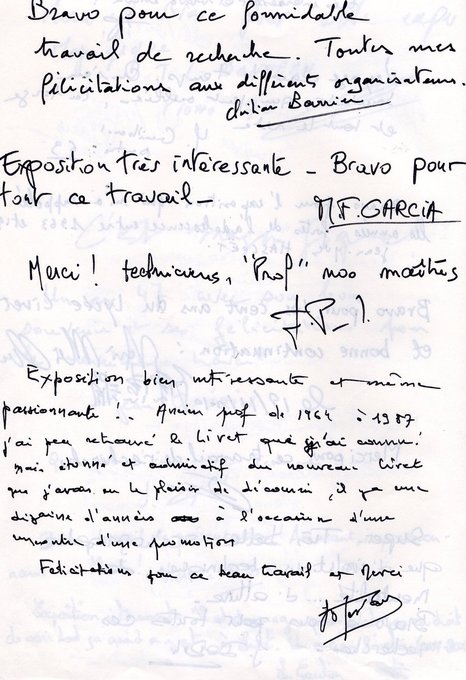 Bravo pour ce formidable
travail de recherche. Toutes mes
félicitations aux différents organisateurs.
Exposition très intéressante - Bravo pour
tout ce travail -
M.F. GARCIA
Merci ! techniciens, "Prof" nos maîtres
J.P.
Exposition bien intéressante et même
passionnante ! Ancien prof de 1964 à 1987
j'ai peu retrouvé le Livet que j'ai connu !
mais étonné et admiratif du nouveau Livet
que j'avais eu le plaisir de découvrir, il y a une
dizaine d'années à l'occasion d'une
rencontre d'une promotion
Félicitations pour ce beau travail et Merci